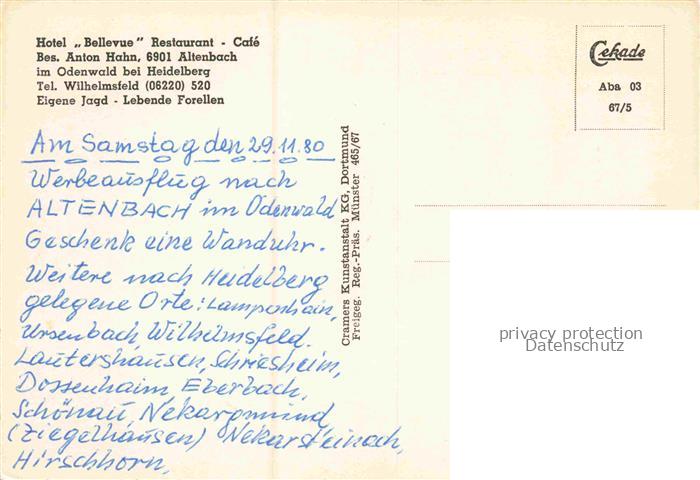 Hotel „Bellevue" Restaurant - Café
Bes. Anton Hahn, 6901 Altenbach
im Odenwald bei Heidelberg
Tel. Wilhelmsfeld (06220) 520
Eigene Jagd - Lebende Forellen
Am Samstag den 29.11.80
Werbeausflug nach
ALTENBACH im Odenwald
Geschenk eine Wanduhr.
Weitere nach Heidelberg
gelegene Orte: Lampenhain,
Ursenbach, Wilhelmsfeld.
Lautershausen, Schriesheim,
Dossenhaim, Eberbach,
Schönau, Nekargmünd,
(Ziegelhausen) Nekarsteinach,
Hirschhorn,
Cramers Kunstanstalt KG, Dortmund
Freigeg. Reg.-Präs. Münster 465/67
Cekade
Aba 03
67/5
privacy protection
Datenschutz